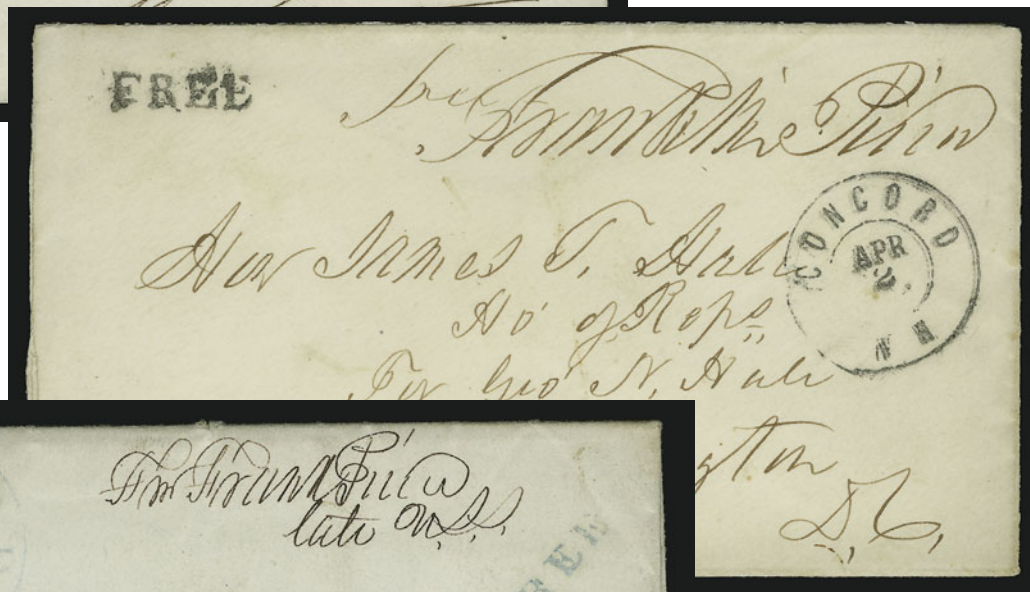 FREE
free Franklin Pierce
CONCORD
APR
2
N H
Hon James T. Hale
Ho of Reps
For Geo N. Hale
gton
D. C.
Fr Frank Pierce
late U.S.S.
FREE